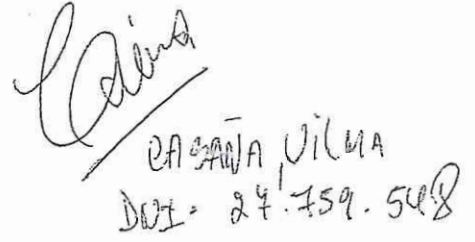 CASAÑA, VILMA
DNI. 27.759.548